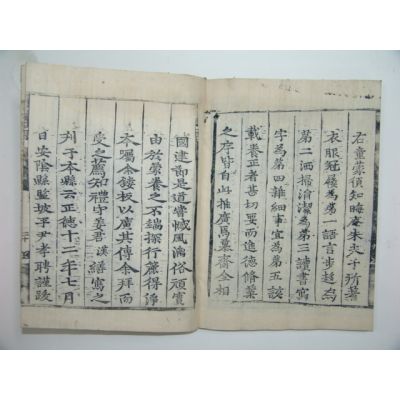 右童蒙須知晦庵朱夫子所著
衣服冠履為第一語言步趨為
第二洒掃涓潔為第三讀書寫
字為第四雜細事宜為第五該
載養正者甚切要而進德修業
之序皆自此推廣焉慕齋金相
國建節是道嘗慽風漓俗頑實
由於蒙養之不端探行簏得淨
本囑余鋟板以廣其傳余拜而
受之薦知禮守姜君漢繕寫之
刋于本縣云正德十二年七月
日安陰縣監坡平尹孝聘謹跋